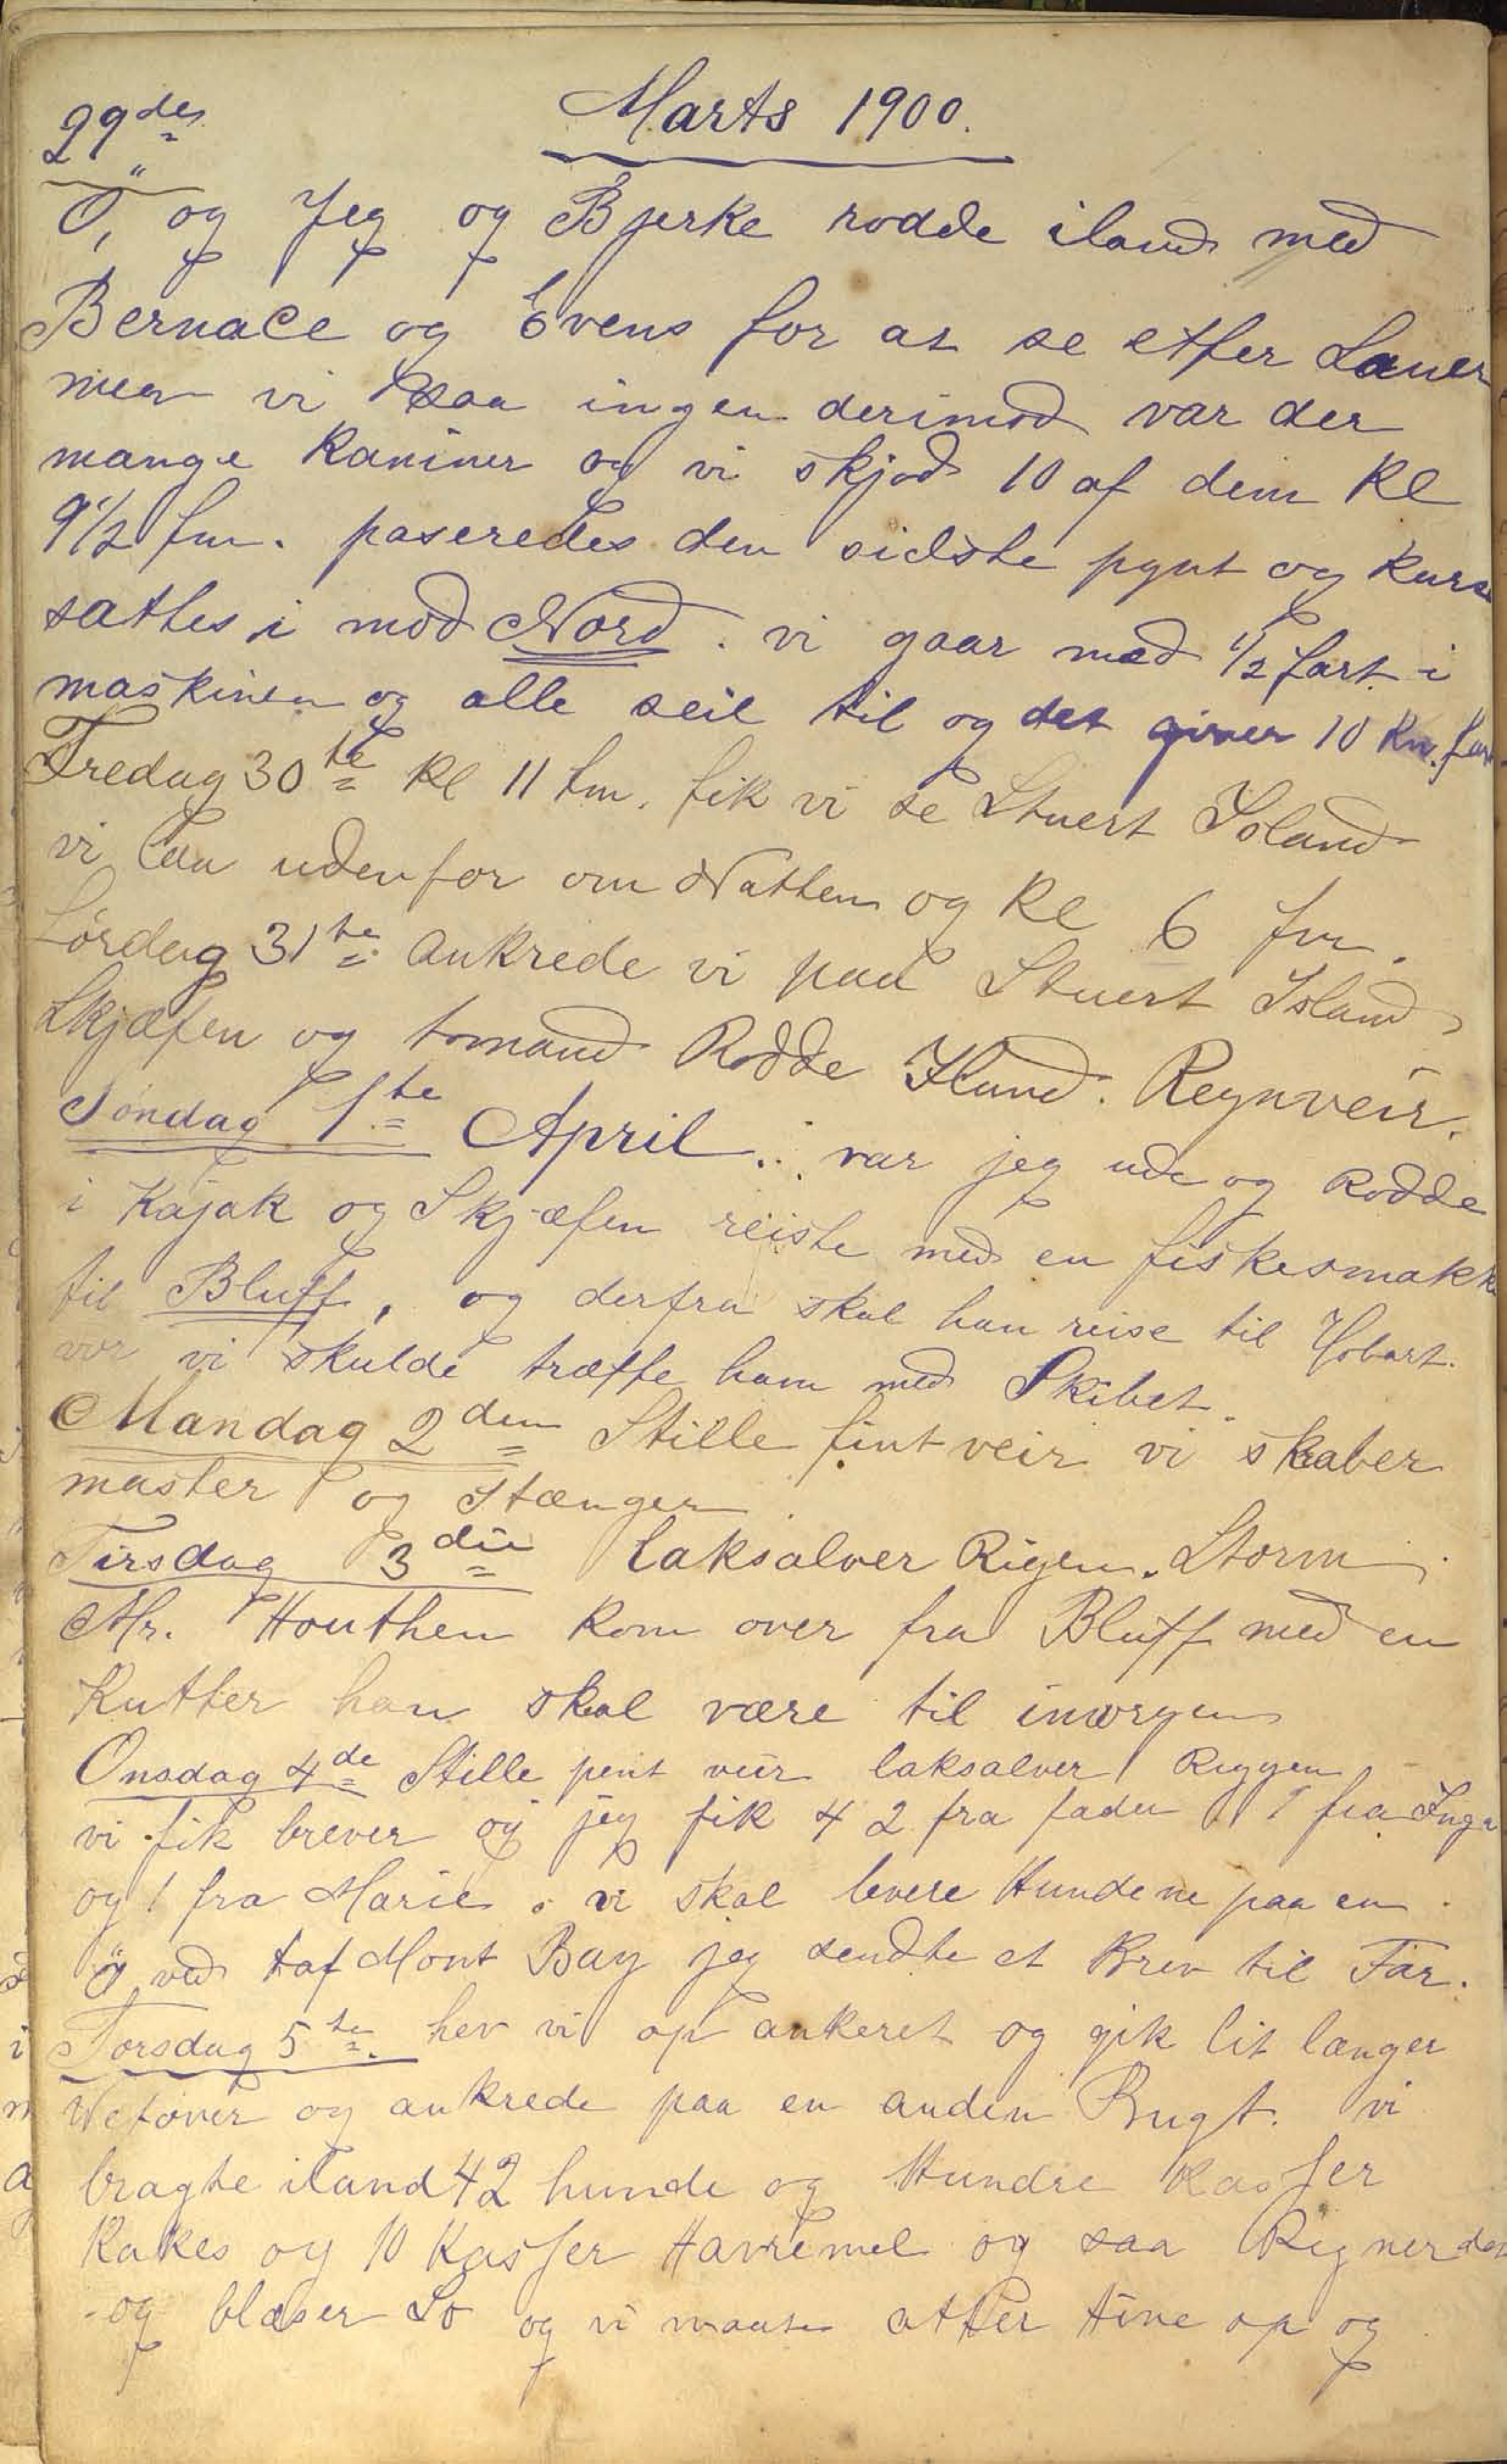 29des
Marts 1900.
Ö, og Jeg og Bjerke rodde iland med
Bernace og Evens for at se etter
men vi saa ingen derimod var der
mange Kaniner og vi skjød 10 af dem Kl
9½ fm. paseredes den sidste pynt og kurs
sattes i mod Nord. vi gaar med ½ fart i
maskinen og alle seil til og det giver 10 Kn. fart
Fredag 30te Kl 11 fm. fik vi se Stuert Island
vi laa udenfor om Natten og Kl 6 fm.
Lördag 31te ankrede vi paa Stuert Island
Skjæfen og tomand Rodde Iland. Regnveir.
Söndag 1te April. var jeg ude og Rodde
i Kajak og Skjæfen reiste med en fiskesmakke
til Bluff, og derfra skal han reise til Hobart.
vor vi skulde træffe ham med Skibet.
Mandag 2den Stille fint veir vi skraber
master og Stænger
Tirsdag 3die laksalver Rigen. Storm.
Mr. Houthen kom over fra Bluff med en
Kutter han skal være til imorgen
Onsdag 4de Stille pent veir laksalver Riggen
vi fik brever og jeg fik 4 2 fra fader 1 fra Inga
og 1 fra Marie. vi skal levere Hundene paa en
Ö ved Haf Mont Bay jeg sendte et Brev til Far.
Torsdag 5te hev vi op ankeret og gik lit længer
Vetover og ankrede paa en anden Bugt. vi
bragte iland 42 hunde og Hundre Kasser
Kakes og 10 Kasser Havremel og saa Regner det
og blæser So og vi maate atter Hive op og